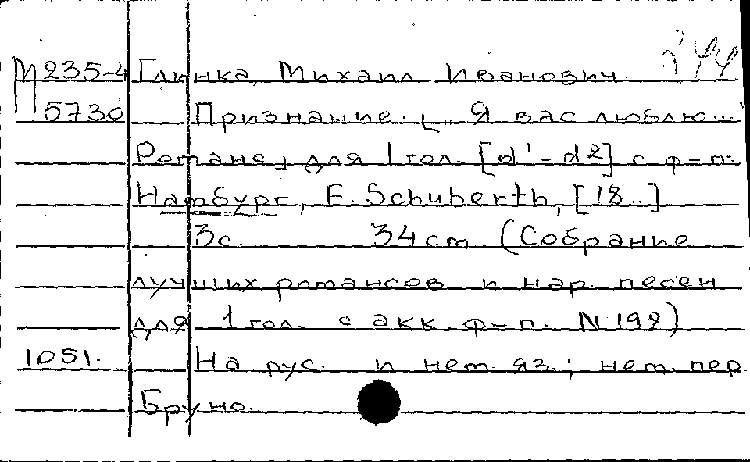 М235-4 Глинка, Михаил Иванович
5730 Признание. „Я вас люблю..."
Романс для 1 гол. [d'-d2] с ф-п.
Гамбург, F. Schuberth, [18..]
3с 34см (Собрание
лучших романсов и нар. песен
для 1 гол. с акк. ф-п. N 198)
1051. На рус. и нем. яз.; нем. пер.
Бруно.